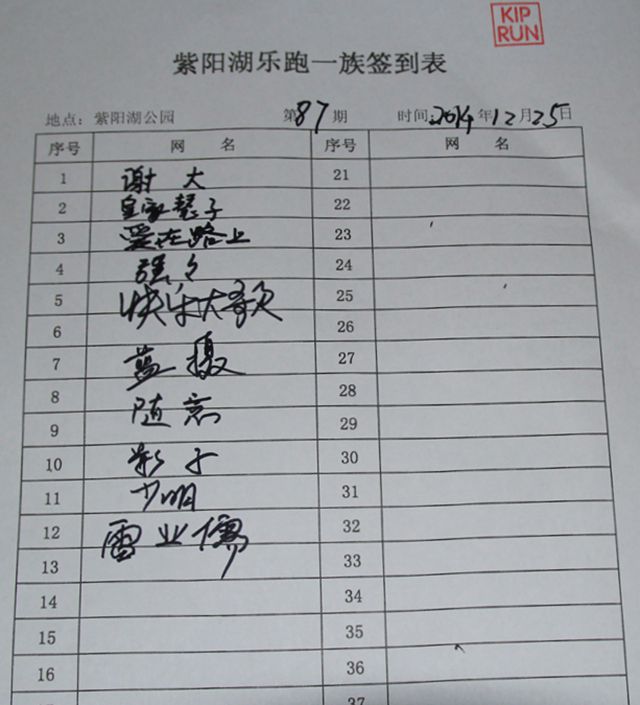 KIP
RUN
紫阳湖乐跑一族签到表
地点：紫阳湖公园 第87期 时间:2014年12月25日
序号 网名 序号 网名
1 谢大 21
2 皇家瑟子 22
3 爱在路上 23
4 强々 24
5 快乐大歌 25
6 26
7 蓝摄 27
8 随意 28
9 29
10 彩子 30
11 少明 31
12 雷业儒 32
13 33
14 34
15 35
16 36
37